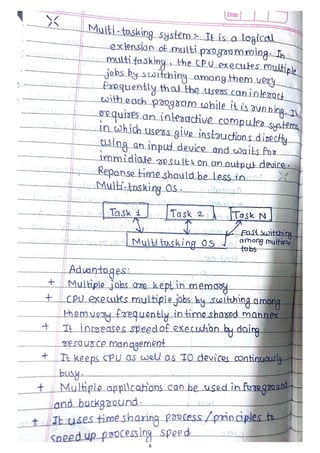 Date
Multi-tasking system :- It is a logical
extension of multi programming. In
multi tasking, the CPU executes multiple
jobs by switching among them very
frequently that the users can interact
with each program while it is running. It
requires an interactive computer systems
in which users give instructions directly
using an input device and waits for
immidiate results on an output device.
Reponse time should be less in
Multi-tasking OS.
Task 1 Task 2 Task N
Multitasking OS
Fast switching
among multiple
tabs
Advantages:
+ Multiple jobs are kept in memory
+ CPU executes multiple jobs by switching among
them very frequently in time shared manner
+ It increases speed of execution by doing
resource management
+ It keeps CPU as well as IO devices continuously
busy.
+ Multiple applications can be used in foreground
and background.
+ It uses time sharing process / principles to
speed up processing speed